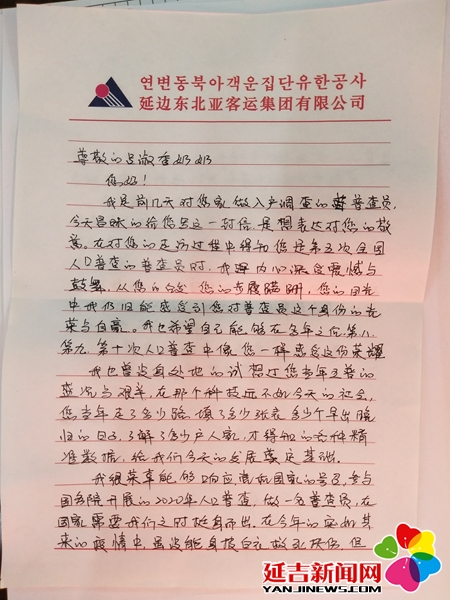 연변동북아객운집단유한공사
延边东北亚客运集团有限公司
尊敬的吕淑香奶奶
您好！
我是前几天对您家做入户调查的普查员，
今天冒昧的给您写这一封信是想表达对您的敬
意。在对您的走访过程中得知您是第五次全国
人口普查的普查员时，我内心深受震撼与
鼓舞。从您的白发 您的步履蹒跚，您的目光
中我仍旧能感受到您对普查员这个身份的光
荣与自豪。我也希望自己能够在多年之后第八、
第九、第十次人口普查中像您一样感受这份荣耀
我也曾设身处地的试想过您当年工作的
盛况与艰辛，在那个科技远不如今天的社会，
您当年走了多少路 填了多少张表 多少个早出晚
归的日子，了解了多少户人家，才得知的各种精
准数据，给我们今天的发展奠定基础。
我很荣幸能够响应国家的号召，参与
国务院开展的2020年人口普查，做一名普查员，在
国家需要我们之时挺身而出，在今年的突如其
来的疫情中，虽没能身披白衣做抗疫，但
延吉新闻网
WWW.YANJINEWS.COM